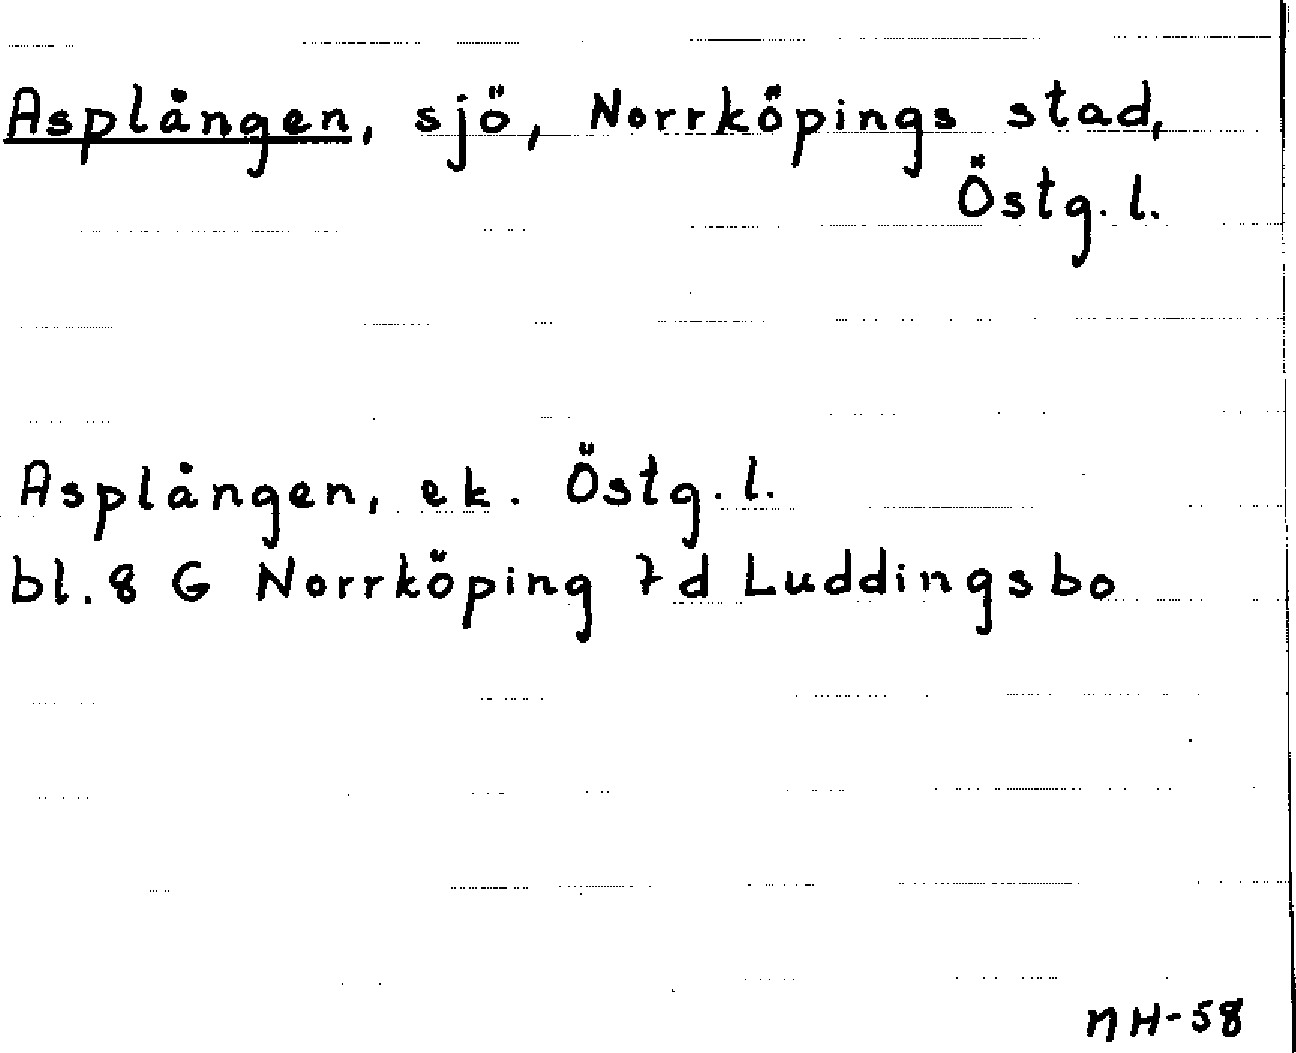 Asplången, sjö, Norrköpings stad,
Östg. l.
Asplången, ek. Östg. l.
bl. 8 G Norrköping 7d Luddingsbo
NH-58